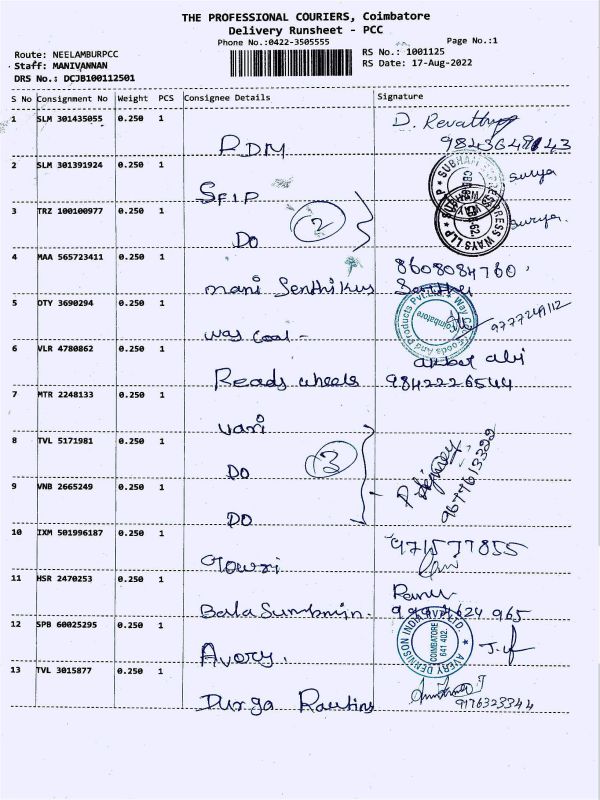 THE PROFESSIONAL COURIERS, Coimbatore
Delivery Runsheet - PCC
Phone No.:0422-3505555
Page No.:1
Route: NEELAMBURPCC
RS No.: 1001125
Staff: MANIVANNAN
RS Date: 17-Aug-2022
DRS No.: DCJB100112501
S No Consignment No Weight PCS Consignee Details Signature
1 SLM 301435055 0.250 1 D. Revathy
RDM
2 SLM 301391924 0.250 1 surya
SFIP
3 TRZ 100100977 0.250 1 2 surya.
DO
4 MAA 565723411 0.250 1 8608084760
mani Senthikus
5 DTY 3690294 0.250 1 9777249112
way Coal -
6 VLR 4780862 0.250 1 akbar ali
Ready wheels 9842226544
7 MTR 2248133 0.250 1
vari
8 TVL 5171981 0.250 1 3
DO
9 VNB 2665249 0.250 1 9677613322
DO
10 IXM 501996187 0.250 1 971577855
Gowri
11 HSR 2470253 0.250 1
Bala
12 SPB 60025295 0.250 1 AVERY DENNISON INDIA PVT LTD
COIMBATORE
641 402
Avory.
13 TVL 3015877 0.250 1
Durga 9176323344